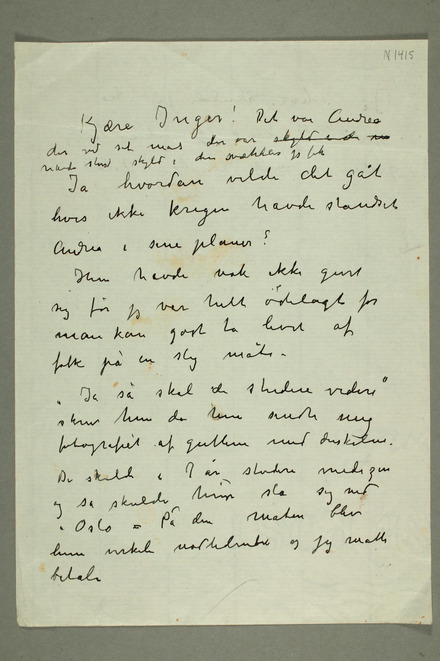 N 1415
Kjære Inger! Det var Andrea
der ved sit mas der var skyld i de
stor skyld i den jeg fik
Ja hvordan vilde det gåt
hvis ikke krigen havde standset
Andrea i sine planer?
Hun havde nok ikke givet
sig før jeg var helt ödelagt for
man kan godt ta livet af
folk på en slig måte.
„Ja så skal de studere videre"
skrev hun da hun sendte mig
fotografiet af guttene med duskelue.
De skulde i 7 år studere medizin
og så skulde hun slå sig ned
i Oslo = På den maten blev
hun virkelig og jeg måtte
betale